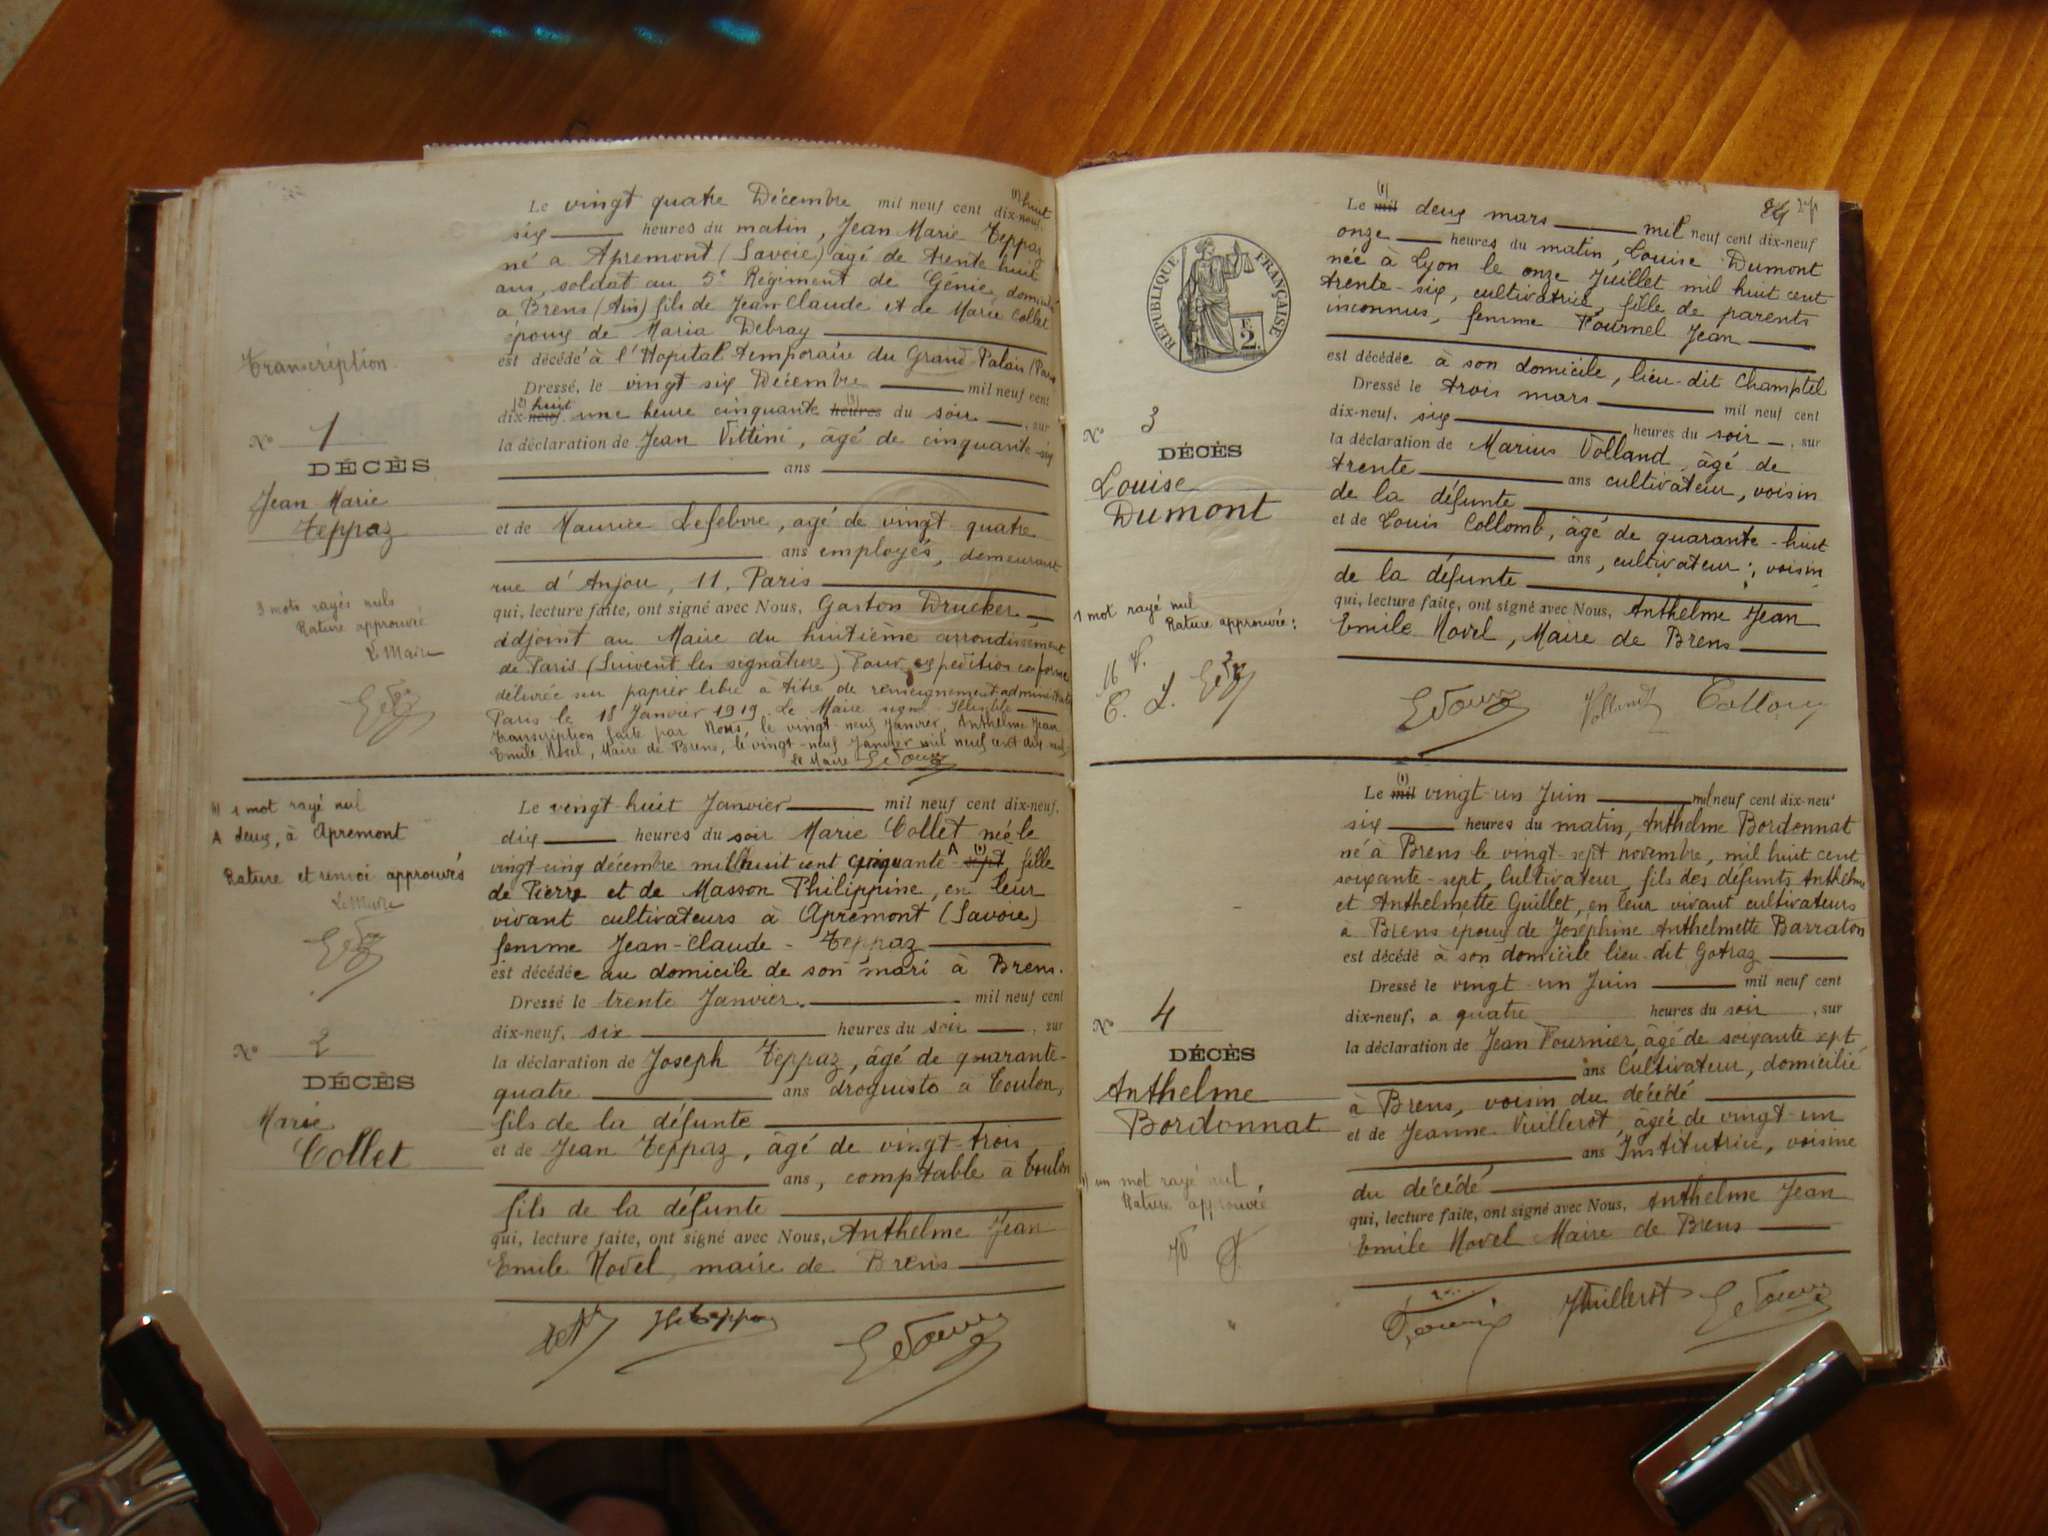 Le vingt quatre Décembre mil neuf cent dix-neuf, (1) huit
six heures du matin, Jean Marie Teppaz
né a Apremont (Savoie) âgé de trente huit
ans, soldat au 5e Régiment de Génie, domicilié
a Brens (Ain) fils de Jean Claude et de Marie Collet
époux de Maria Debray
est décédé à l'Hopital temporaire du Grand Palais (Paris
Dressé, le vingt-six Décembre mil neuf cent
dix-neuf (2) huit une heure cinquante heures (3) du soir, sur
la déclaration de Jean Vittini, âgé de cinquante-six
ans
et de Maurice Lefebvre, agé de vingt quatre
ans employés, demeurant
rue d'Anjou, 11, Paris
qui, lecture faite, ont signé avec Nous, Gaston Drucker
adjoint au Maire du huitième arrondissement
de Paris (Suivent les signatures) Pour expédition conforme
délivrée sur papier libre à titre de renseignement administratif
Paris le 18 Janvier 1919. Le Maire signé Illisible
Transcription faite par Nous, le vingt-neuf Janvier, Anthelme Jean
Emile Novel, Maire de Brens, le vingt-neuf Janvier mil neuf cent dix neuf
Le Maire
Transcription
No 1
DÉCÈS
Jean Marie
Teppaz
3 mots rayés nuls
Rature approuvée
Le Maire
Le vingt-huit Janvier mil neuf cent dix-neuf,
dix heures du soir Marie Collet née le
vingt-cinq décembre mil huit cent cinquante A sept (1), fille
de Pierre et de Masson Philippine, en leur
vivant cultivateurs à Apremont (Savoie)
femme Jean-Claude - Teppaz
est décédée au domicile de son mari à Brens.
Dressé le trente Janvier. mil neuf cent
dix-neuf, six heures du soir, sur
la déclaration de Joseph Teppaz, âgé de quarante-
quatre ans droguiste à Toulon,
fils de la défunte
et de Jean Teppaz, âgé de vingt-trois
ans, comptable à Toulon
fils de la défunte
qui, lecture faite, ont signé avec Nous, Anthelme Jean
Emile Novel, maire de Brens
(1) 1 mot rayé nul
A deux, à Apremont
Rature et renvoi approuvés
Le Maire
No 2
DÉCÈS
Marie
Collet
84
RÉPUBLIQUE FRANÇAISE
2
F.
Le mil (1) deux mars mil neuf cent dix-neuf
onze heures du matin, Louise Dumont
née à Lyon le onze Juillet mil huit cent
trente-six, cultivatrice, fille de parents
inconnus, femme Fournel Jean
est décédée à son domicile, lieu-dit Champtel
Dressé le trois mars mil neuf cent
dix-neuf, six heures du soir, sur
la déclaration de Marius Volland, âgé de
trente ans cultivateur, voisin
de la défunte
et de Louis Collomb, âgé de quarante-huit
ans, cultivateur, voisin
de la défunte
qui, lecture faite, ont signé avec Nous, Anthelme Jean
Emile Novel, Maire de Brens
Volland
No 3
DÉCÈS
Louise
Dumont
1 mot rayé nul
Rature approuvée:
Le mil (1) vingt-un Juin mil neuf cent dix-neuf
six heures du matin, Anthelme Bordonnat
né à Brens le vingt-sept novembre, mil huit cent
soixante-sept, Cultivateur, fils des défunts Anthelme
et Anthelmette Guillet, en leur vivant cultivateurs
a Brens époux de Joséphine Anthelmette Barraton
est décédé à son domicile lieu-dit Gotraz
Dressé le vingt-un Juin mil neuf cent
dix-neuf, a quatre heures du soir, sur
la déclaration de Jean Fournier, âgé de soixante sept
ans Cultivateur, domicilié
à Brens, voisin du décédé
et de Jeanne Vuillerot, âgée de vingt-un
ans Institutrice, voisine
du décédé
qui, lecture faite, ont signé avec Nous, Anthelme Jean
Emile Novel Maire de Brens
JVuillerot
No 4
DÉCÈS
Anthelme
Bordonnat
(1) un mot rayé nul,
Rature approuvée